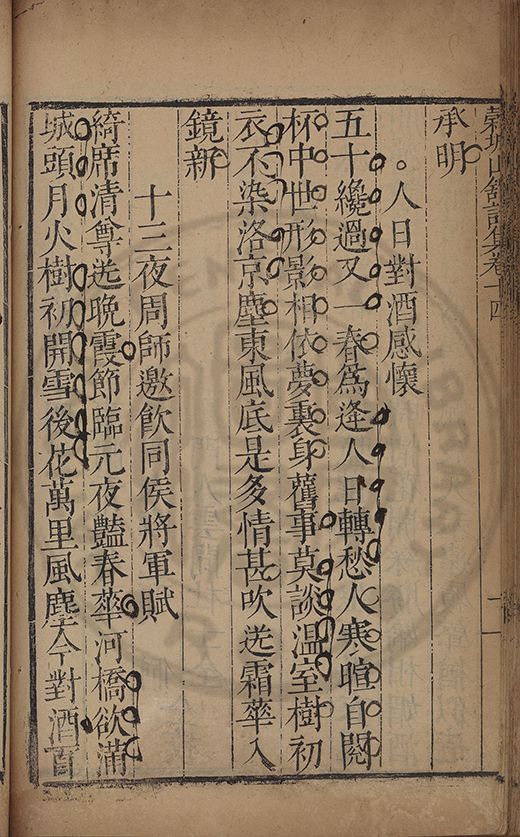 城山舘詩集卷十四
承明
人日對酒感懷
五十纔過又一春爲逢人日轉愁人寒暄自閱
杯中世形影相依夢裏身舊事莫談溫室樹初
衣不染洛京塵東風底是多情甚吹送霜華入
鏡新
十三夜周師邀飲同侯將軍賦
綺席清尊送晚霞節臨元夜豔春華河橋欲滿
城頭月火樹初開雪後花萬里風塵今對酒百